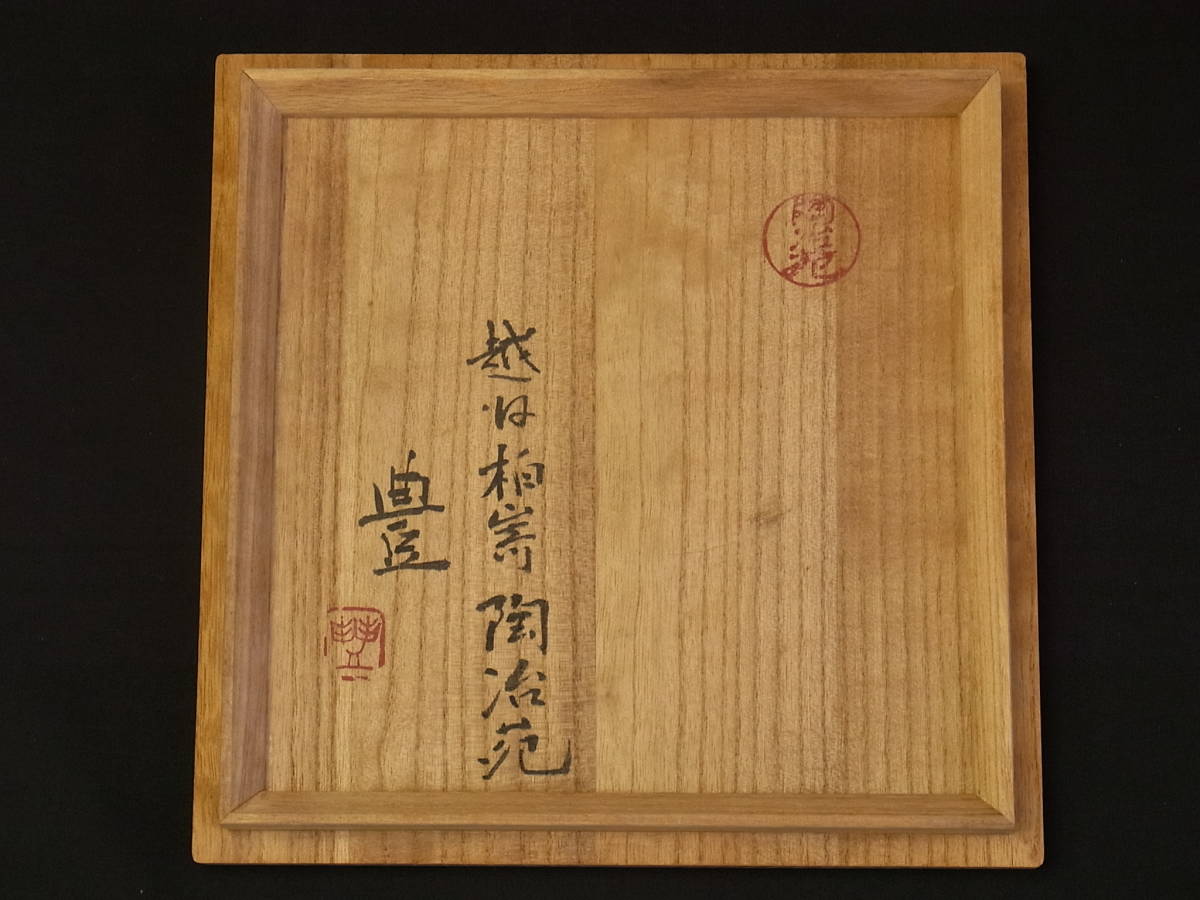 陶冶苑
越州柏嵜 陶冶苑
豊
豊